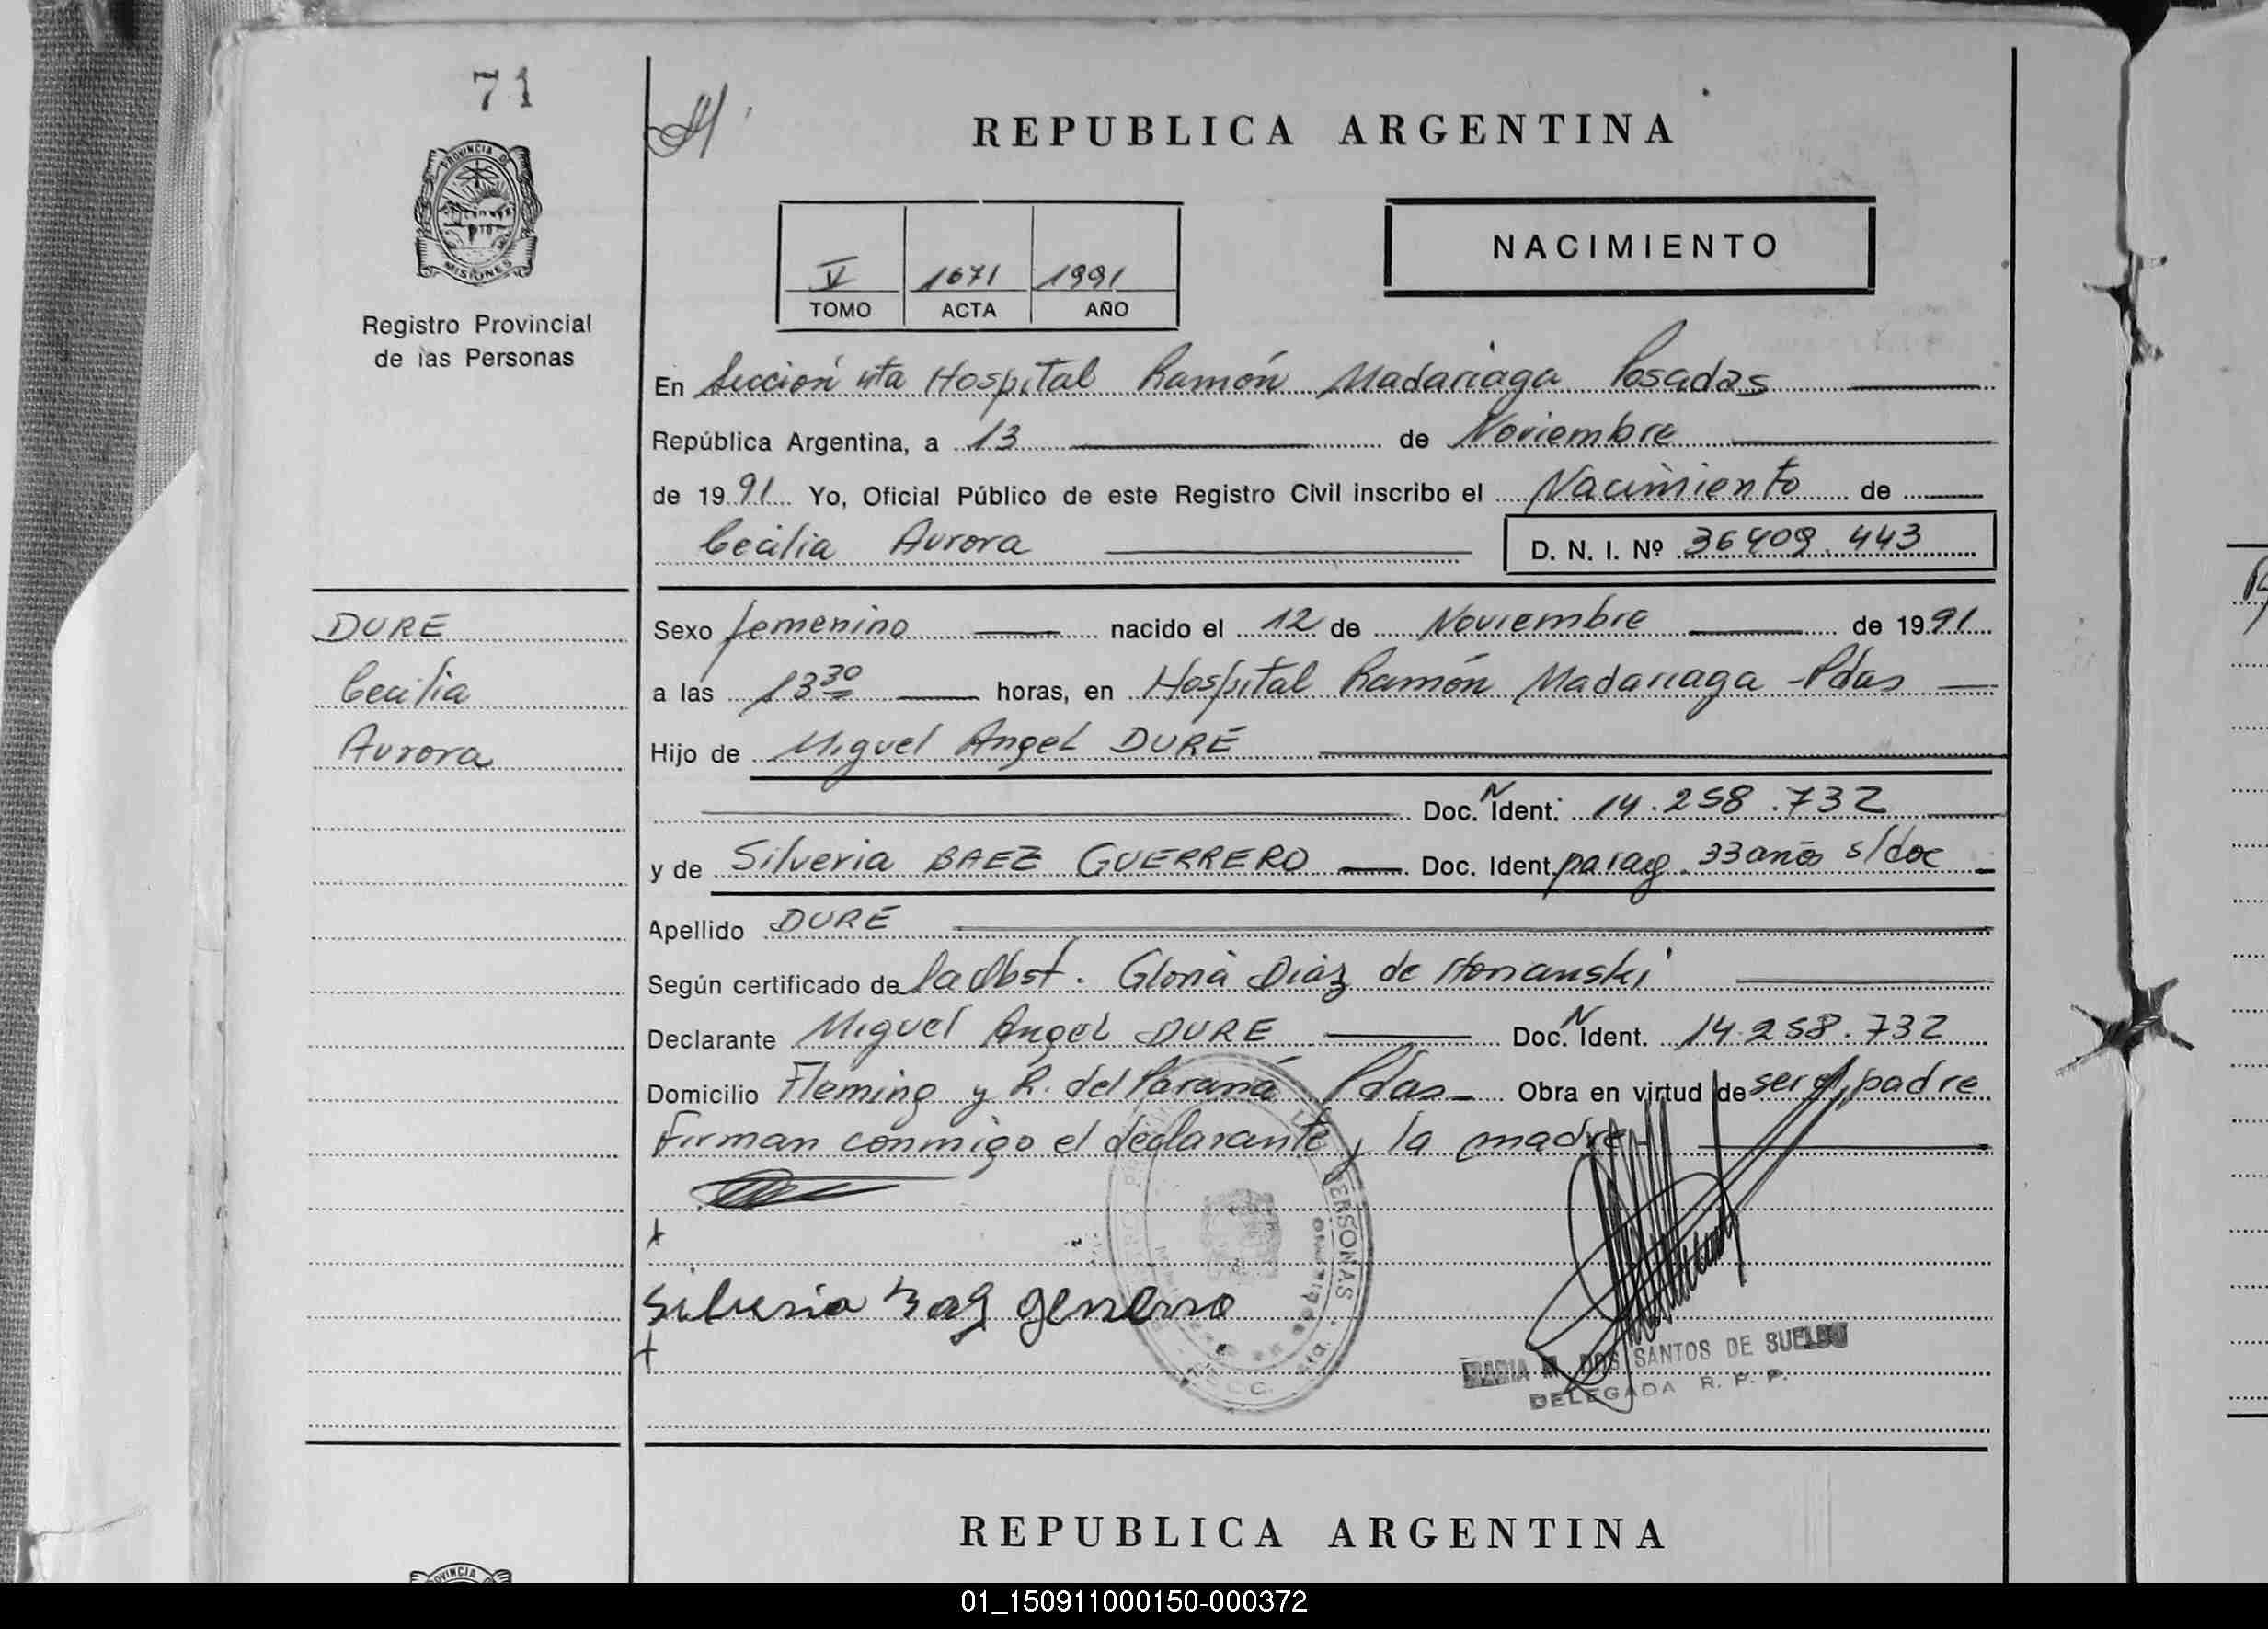 71
PROVINCIA DE
MISIONES
Registro Provincial
de las Personas
REPUBLICA ARGENTINA
V 1671 1991
TOMO ACTA AÑO
NACIMIENTO
En Sección 4ta Hospital Ramón Madariaga Posadas
República Argentina, a 13 de Noviembre
de 1991 Yo, Oficial Público de este Registro Civil inscribo el Nacimiento de
Cecilia Aurora D. N. I. Nº 36409.443
DURÉ
Cecilia
Aurora
Sexo femenino nacido el 12 de Noviembre de 1991
a las 13 30 horas, en Hospital Ramón Madariaga - Pdas
Hijo de Miguel Angel DURÉ
Doc. N Ident. 14.258.732
y de Silveria BAEZ GUERRERO Doc. Ident. parag. 33 años s/doc
Apellido DURÉ
Según certificado de la Obst. Gloria Diaz de
Declarante Miguel Angel DURE Doc. N Ident. 14.258.732
Domicilio Fleming y R. del Paraná Pdas Obra en virtud de ser el padre
Firman conmigo el declarante y la madre
PERSONAS
MARIA M. DOS SANTOS DE SUELDO
DELEGADA R. P. P.
REPUBLICA ARGENTINA
01_150911000150-000372